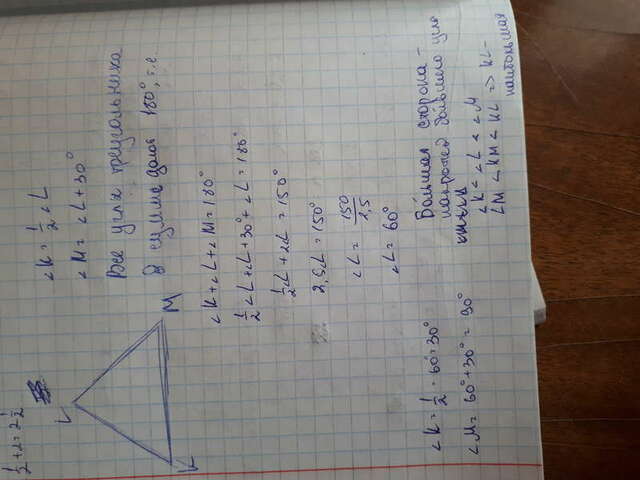 1/2 + 2 = 2 1/2
L
K
M
∠K = 1/2 ∠L
∠M = ∠L + 30°
Все углы треугольника
в сумме дают 180°, т.е.
∠K + ∠L + ∠M = 180°
1/2 ∠L + ∠L + 30° + ∠L = 180°
1/2 ∠L + 2∠L = 150°
2,5∠L = 150°
∠L = 150/2,5
∠L = 60°
∠K = 1/2 · 60° = 30°
∠M = 60° + 30° = 90°
Бо́льшая сторона –
напротив большего угла
∠K < ∠L < ∠M
LM < KM < KL => KL –
наибольшая